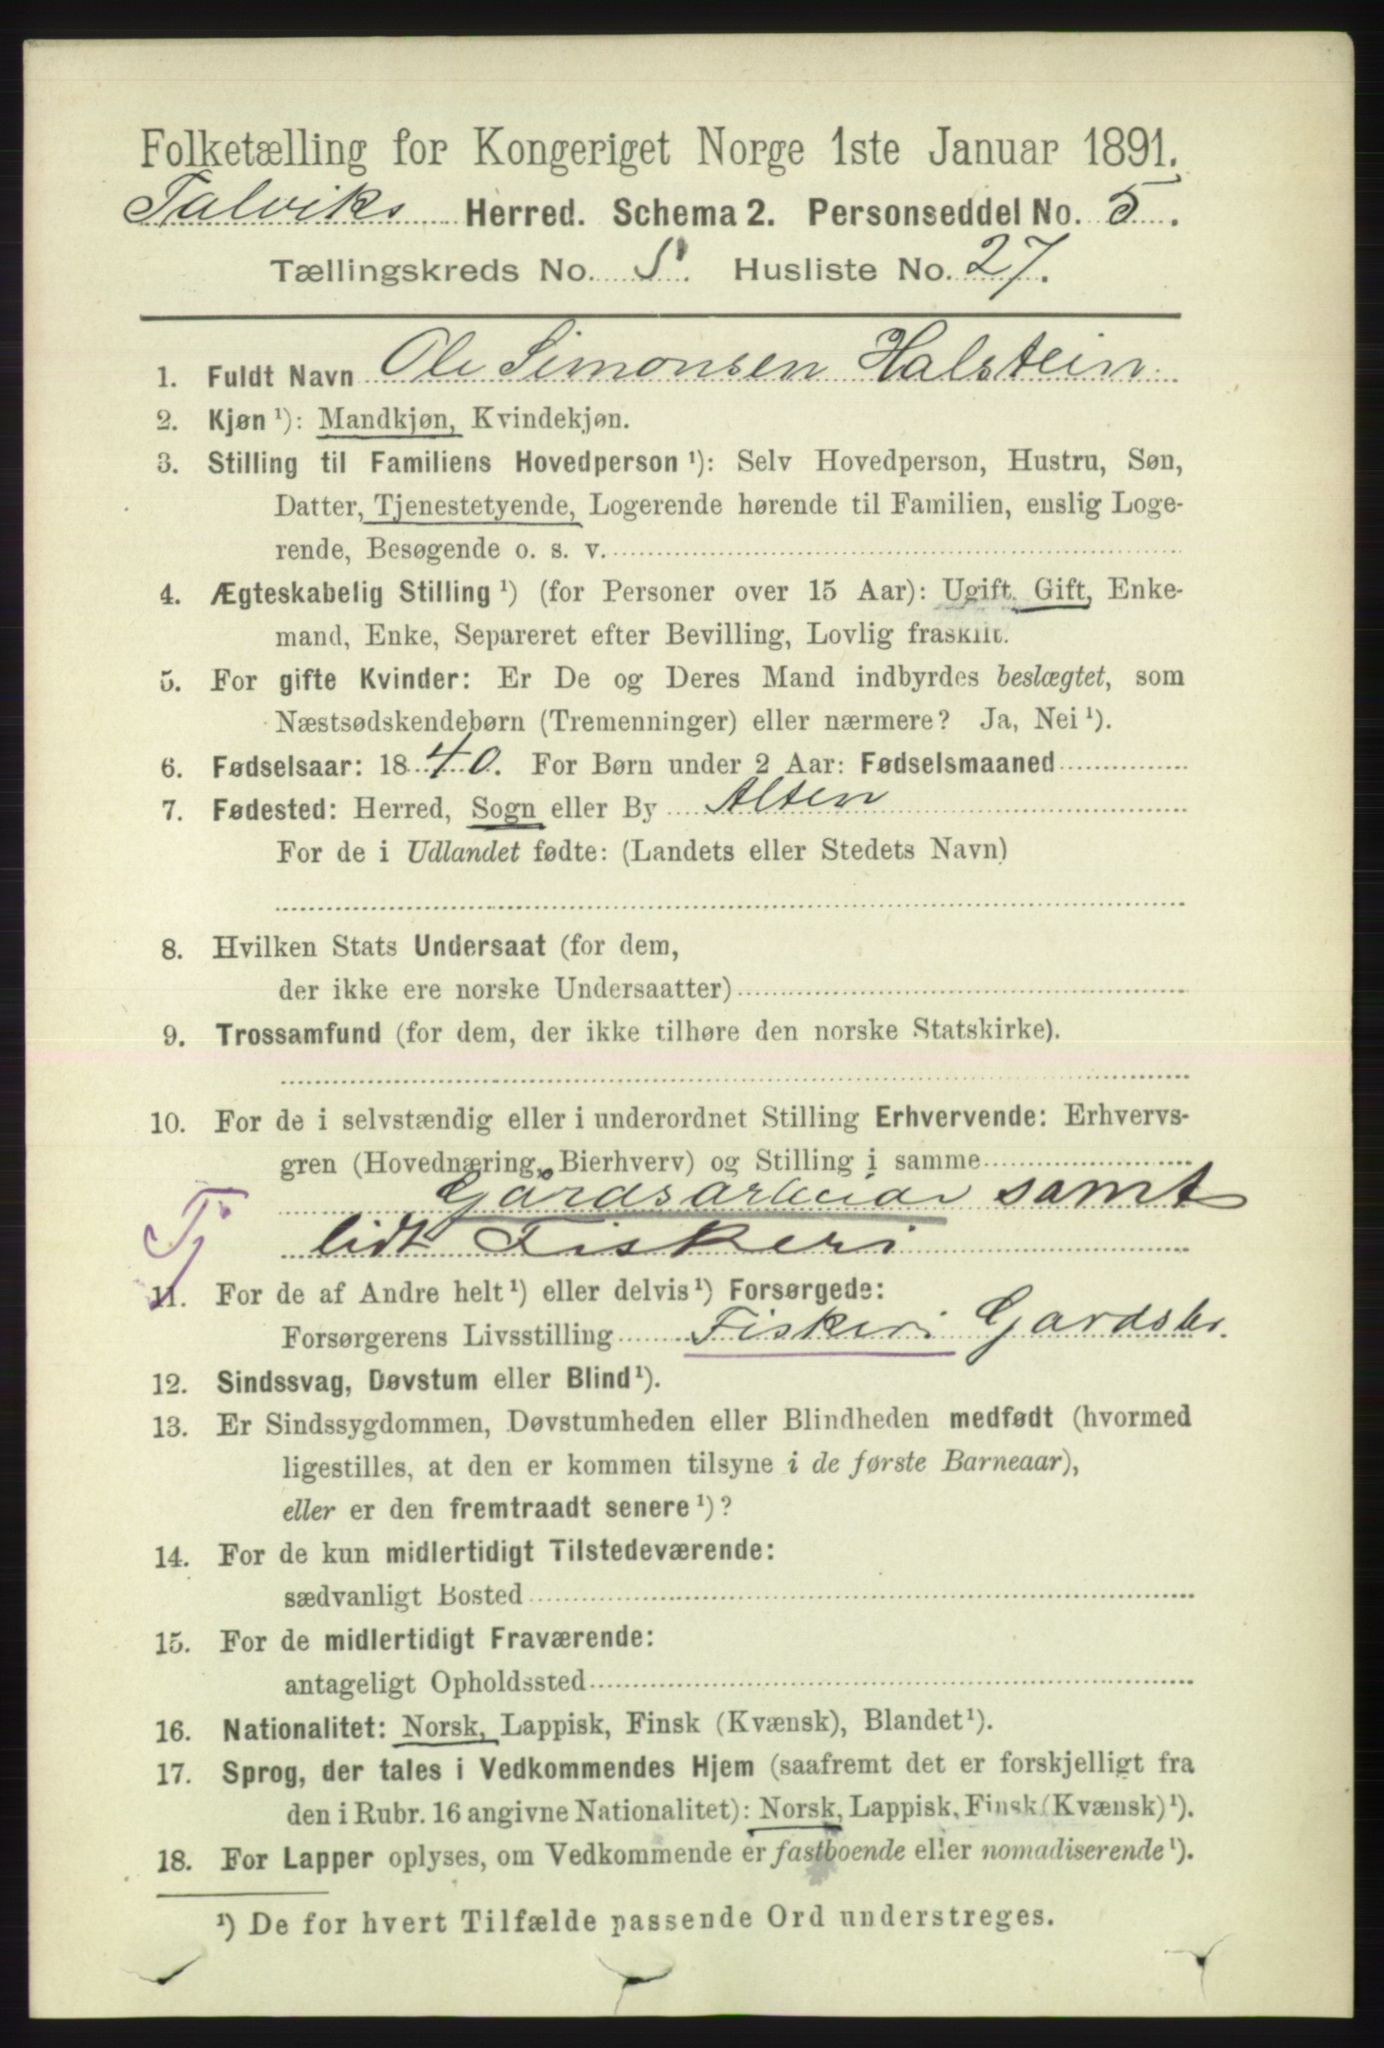 Folketælling for Kongeriget Norge 1ste Januar 1891.
Talviks Herred. Schema 2. Personseddel No. 5.
Tællingskreds No. 5. Husliste No. 27.
1. Fuldt Navn Ole Simonsen Halstein
2. Kjøn ¹): Mandkjøn, Kvindekjøn.
3. Stilling til Familiens Hovedperson ¹): Selv Hovedperson, Hustru, Søn,
Datter, Tjenestetyende, Logerende hørende til Familien, enslig Loge-
rende, Besøgende o. s. v.
4. Ægteskabelig Stilling ¹) (for Personer over 15 Aar): Ugift, Gift, Enke-
mand, Enke, Separeret efter Bevilling, Lovlig fraskilt.
5. For gifte Kvinder: Er De og Deres Mand indbyrdes beslægtet, som
Næstsødskendebørn (Tremenninger) eller nærmere? Ja, Nei ¹).
6. Fødselsaar: 1840. For Børn under 2 Aar: Fødselsmaaned
7. Fødested: Herred, Sogn eller By Alten
For de i Udlandet fødte: (Landets eller Stedets Navn)
8. Hvilken Stats Undersaat (for dem,
der ikke ere norske Undersaatter)
9. Trossamfund (for dem, der ikke tilhøre den norske Statskirke).
10. For de i selvstændig eller i underordnet Stilling Erhvervende: Erhvervs-
gren (Hovednæring, Bierhverv) og Stilling i samme
Gårdsarbeider samt
Tj lidt Fiskeri
11. For de af Andre helt ¹) eller delvis ¹) Forsørgede:
Forsørgerens Livsstilling Fiskeri Gardsbr.
12. Sindssvag, Døvstum eller Blind ¹).
13. Er Sindssygdommen, Døvstumheden eller Blindheden medfødt (hvormed
ligestilles, at den er kommen tilsyne i de første Barneaar),
eller er den fremtraadt senere ¹)?
14. For de kun midlertidigt Tilstedeværende:
sædvanligt Bosted
15. For de midlertidigt Fraværende:
antageligt Opholdssted
16. Nationalitet: Norsk, Lappisk, Finsk (Kvænsk), Blandet ¹).
17. Sprog, der tales i Vedkommendes Hjem (saafremt det er forskjelligt fra
den i Rubr. 16 angivne Nationalitet): Norsk, Lappisk, Finsk (Kvænsk) ¹).
18. For Lapper oplyses, om Vedkommende er fastboende eller nomadiserende ¹).
¹) De for hvert Tilfælde passende Ord understreges.